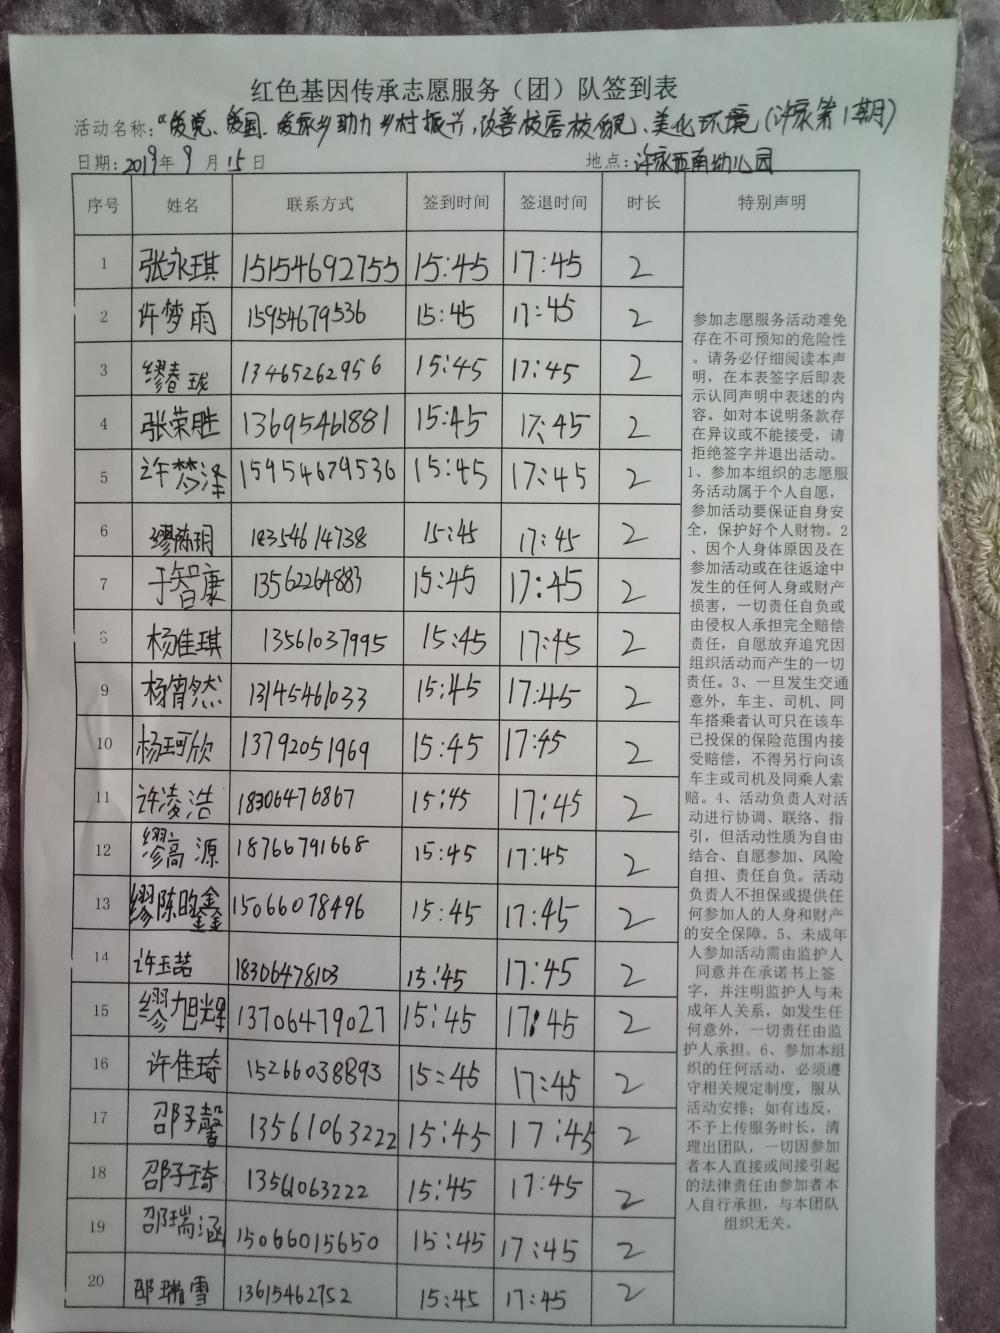 红色基因传承志愿服务（团）队签到表
活动名称：“爱党、爱国、爱家乡助力乡村振兴，改善校容校貌、美化环境(许家第1期)
日期：2019年9月15日 地点：许家西南幼儿园
序号 姓名 联系方式 签到时间 签退时间 时长 特别声明
1 张永琪 15154692755 15:45 17:45 2
2 许梦雨 15954679536 15:45 17:45 2
3 缪春珑 13465262956 15:45 17:45 2
4 张荣胜 13695461881 15:45 17:45 2
5 许梦泽 15954679536 15:45 17:45 2
6 缪陈玥 18354614738 15:45 17:45 2
7 于智康 13562264883 15:45 17:45 2
8 杨佳琪 13561037995 15:45 17:45 2
9 杨宵然 13145461033 15:45 17:45 2
10 杨珂欣 13792051969 15:45 17:45 2
11 许凌浩 18306476867 15:45 17:45 2
12 缪高源 18766791668 15:45 17:45 2
13 缪陈昀鑫 15066078496 15:45 17:45 2
14 许玉喆 18306478103 15:45 17:45 2
15 缪旭辉 13706479027 15:45 17:45 2
16 许佳琦 15266038893 15:45 17:45 2
17 邵子馨 13561063222 15:45 17:45 2
18 邵子琦 13561063222 15:45 17:45 2
19 邵瑞涵 15066015650 15:45 17:45 2
20 邵瑞雪 13615462752 15:45 17:45 2
参加志愿服务活动难免
存在不可预知的危险性
。请务必仔细阅读本声
明，在本表签字后即表
示认同声明中表述的内
容。如对本说明条款存
在异议或不能接受，请
拒绝签字并退出活动。
1、参加本组织的志愿服
务活动属于个人自愿，
参加活动要保证自身安
全，保护好个人财物。2
、因个人身体原因及在
参加活动或在往返途中
发生的任何人身或财产
损害，一切责任自负或
由侵权人承担完全赔偿
责任，自愿放弃追究因
组织活动而产生的一切
责任。3、一旦发生交通
意外，车主、司机、同
车搭乘者认可只在该车
已投保的保险范围内接
受赔偿，不得另行向该
车主或司机及同乘人索
赔。4、活动负责人对活
动进行协调、联络、指
引，但活动性质为自由
结合、自愿参加、风险
自担、责任自负。活动
负责人不担保或提供任
何参加人的人身和财产
的安全保障。5、未成年
人参加活动需由监护人
同意并在承诺书上签
字，并注明监护人与未
成年人关系，如发生任
何意外，一切责任由监
护人承担。6、参加本组
织的任何活动，必须遵
守相关规定制度，服从
活动安排；如有违反，
不予上传服务时长，清
理出团队，一切因参加
者本人直接或间接引起
的法律责任由参加者本
人自行承担，与本团队
组织无关。